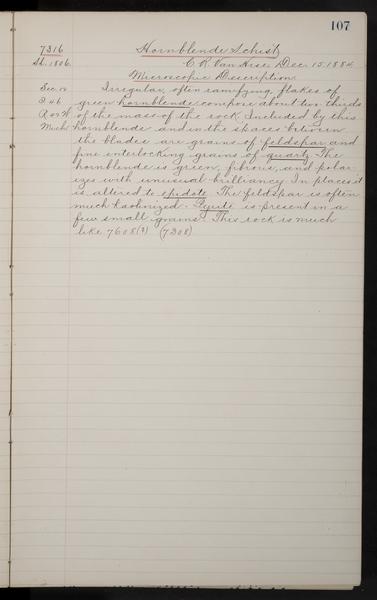 107
7316 Hornblende Schist
Sl. 1806. C R Van Hise, Dec. 15. 1884
Microscopic Description.
Sec. 10 Irregular, often ramifying, flakes of
T 46 green hornblende compose about two thirds
R 29 W of the mass of the rock. Included by this
Mich hornblende and in the spaces between
the blades are grains of feldspar and
fine interlocking grains of quartz. The
hornblende is green, fibrous, and polar-
izes with unusual brilliancy. In places it
is altered to epidote. The feldspar is often
much kaolinized. Pyrite is present in a
few small grains. This rock is much
like 7608(?) (7308)